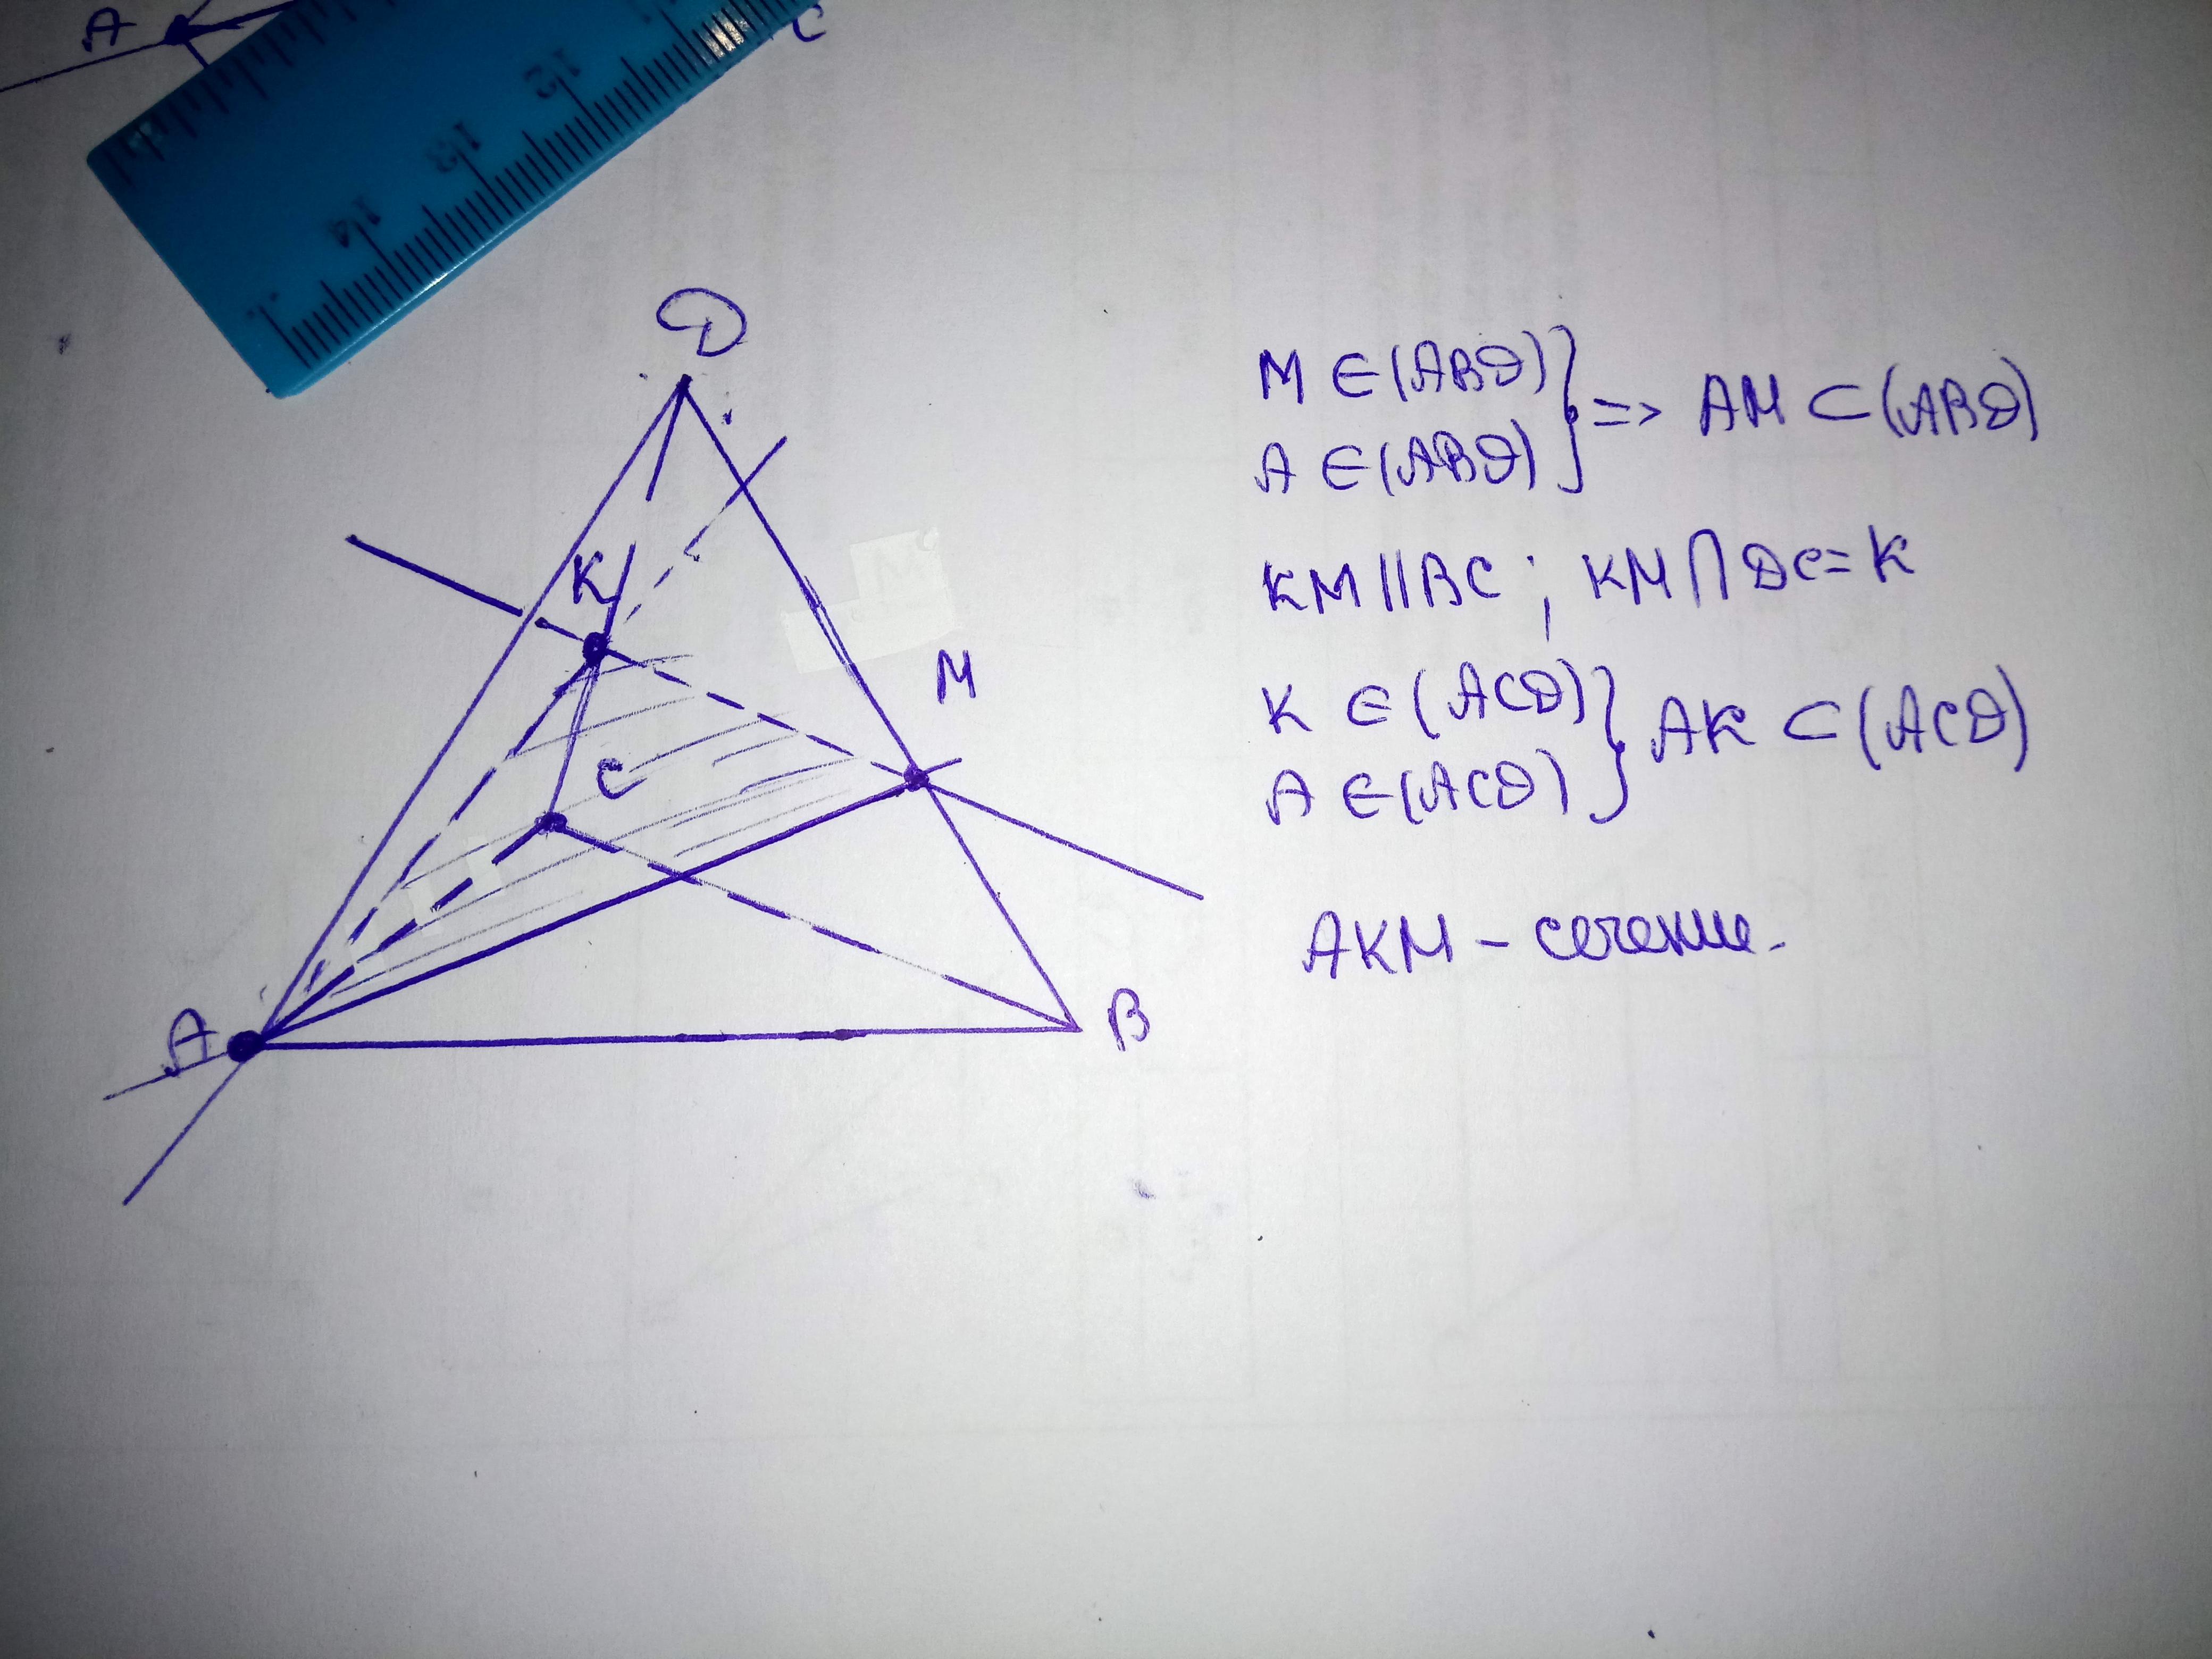 A
C
12
13
14
D
K
M
C
A
B
M ∈ (ABD)
A ∈ (ABD) } => AM ⊂ (ABD)
KM || BC ; KM ∩ DC = K
K ∈ (ACD)
A ∈ (ACD) } AK ⊂ (ACD)
AKM – сечение.